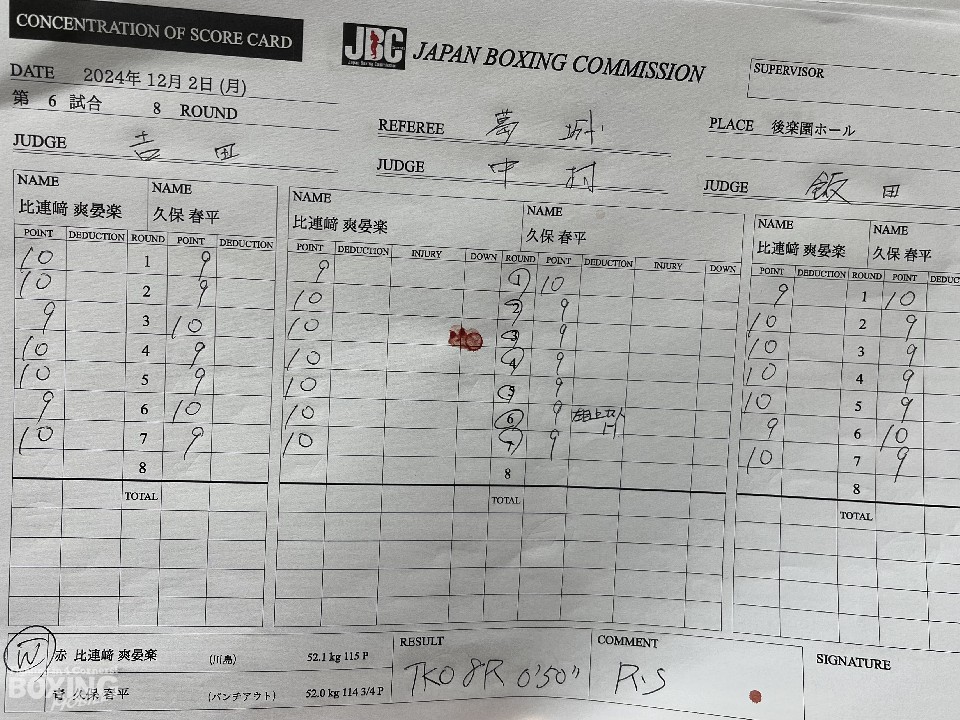 CONCENTRATION OF SCORE CARD
JBC JAPAN BOXING COMMISSION
SUPERVISOR
DATE 2024年 12月 2日 (月)
第 6 試合 8 ROUND
REFEREE
PLACE 後楽園ホール
JUDGE 吉田
JUDGE 中村
JUDGE 飯田
NAME 比連﨑 爽晏楽 NAME 久保 春平
POINT DEDUCTION ROUND POINT DEDUCTION
10 1 9
10 2 9
9 3 10
10 4 9
10 5 9
9 6 10
10 7 9
8
TOTAL
NAME 比連﨑 爽晏楽 NAME 久保 春平
POINT DEDUCTION INJURY DOWN ROUND POINT DEDUCTION INJURY DOWN
9 1 10
10 2 9
10 3 9
10 4 9
10 5 9
10 6 9
10 7 9
8
TOTAL
NAME 比連﨑 爽晏楽 NAME 久保 春平
POINT DEDUCTION ROUND POINT DEDUC
9 1 10
10 2 9
10 3 9
10 4 9
10 5 9
9 6 10
10 7 9
8
TOTAL
W 赤 比連﨑 爽晏楽 (川島) 52.1 kg 115 P
青 久保 春平 (パンチアウト) 52.0 kg 114 3/4 P
RESULT
TKO 8R 0'50"
COMMENT
R.S
SIGNATURE
BOXING
MOBILE